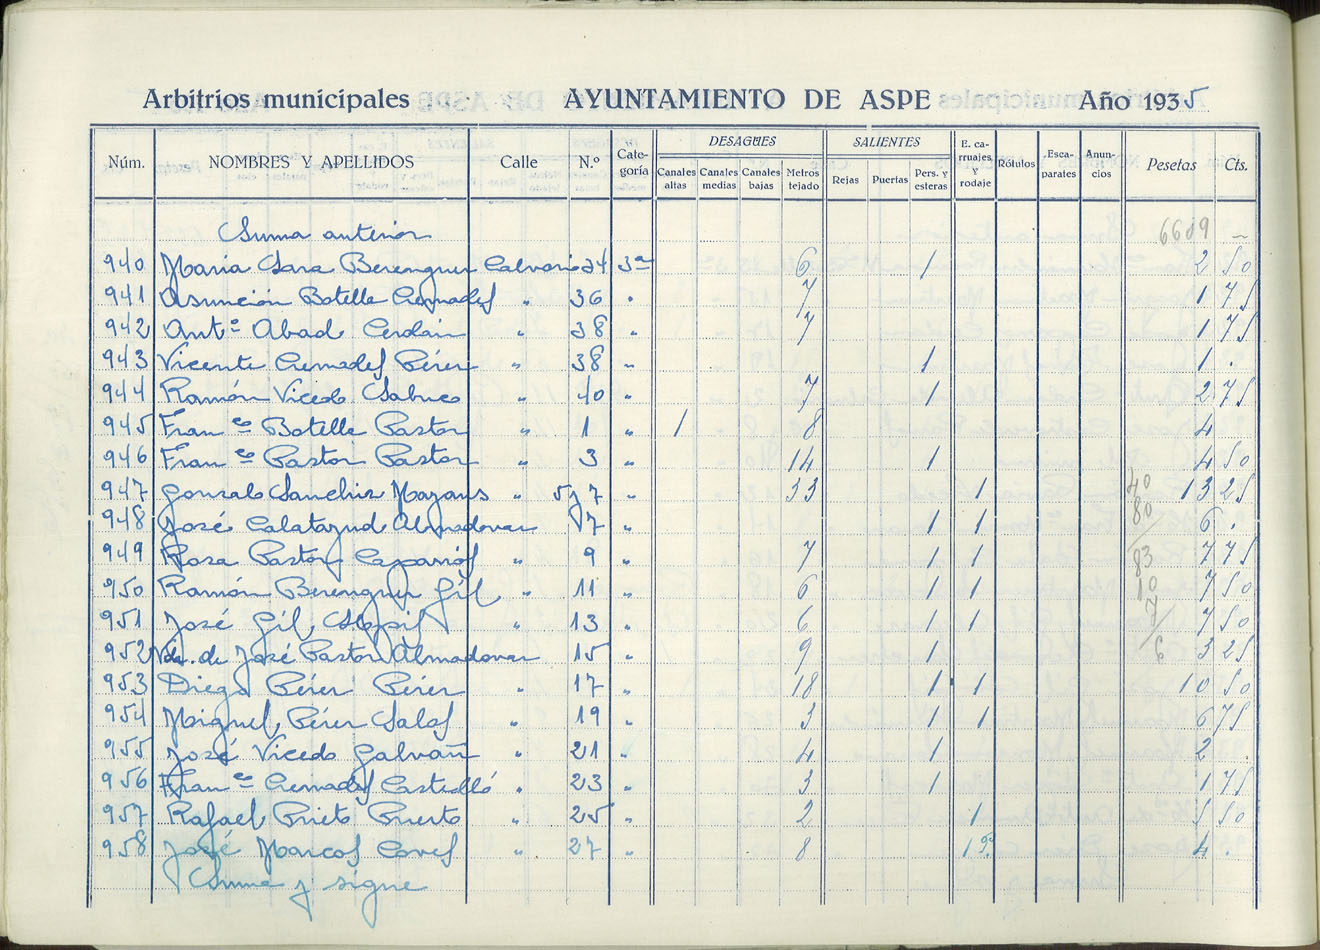 Arbitrios municipales AYUNTAMIENTO DE ASPE Año 1935
Núm. NOMBRES Y APELLIDOS Calle N.º Cate-goría DESAGÜES Canales altas Canales medias Canales bajas Metros tejado SALIENTES Rejas Puertas Pers. y esteras E. ca-rruajes y rodaje Rótulos Esca-parates Anun-cios Pesetas Cts.
Suma anterior 6609 —
940 María Sara Berenguer Calvario 34 3ª 6 1 2 50
941 Asunción Botella Cremades " 36 " 7 1 75
942 Antº Abad Cerdán " 38 " 7 1 75
943 Vicente Cremades Pérez " 38 " 1 1 .
944 Ramón Vicedo Sabuco " 40 " 7 1 2 75
945 Franco Botella Pastor " 1 " 1 8 4
946 Franco Pastor Pastor " 3 " 14 1 4 50
947 Gonzalo Sanchiz Mazans " 5 y 7 " 33 1 40 13 25
948 José Calatayud Almodovar 7 " 1 1 80 6 .
949 Rosa Pastor Caparrós " 9 " 7 1 1 83 7 75
950 Ramón Berenguer Gil " 11 " 6 1 1 10 7 50
951 José Gil " 13 " 6 1 1 7 7 50
952 Vda. de José Pastor Almodovar 15 " 9 1 6 3 25
953 Diego Pérez Pérez " 17 " 18 1 1 10 50
954 Miguel Pérez Salas " 19 " 3 1 1 6 75
955 José Vicedo Galvañ " 21 " 4 1 2 .
956 Franco Cremades Castelló " 23 " 3 1 1 75
957 Rafael Prieto Puerto " 25 " 2 1 5 50
958 José Marcos Coves " 27 " 8 1 4 .
Suma y sigue